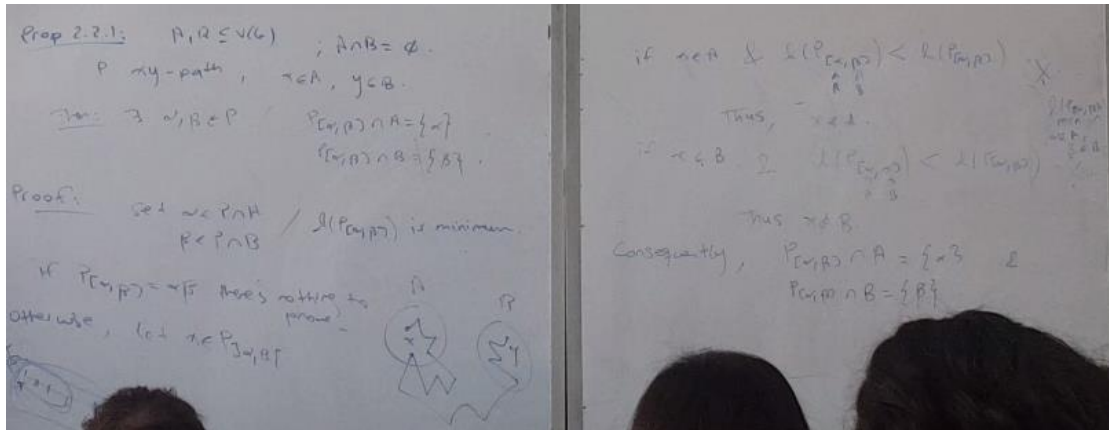 Prop 2.2.1: A, B ⊆ V(G) ; A∩B = ∅.
P xy-path, x∈A, y∈B.
Then: ∃ α, β ∈ P P[α,β] ∩ A = {α}
P[α,β] ∩ B = {β}.
Proof: Let α ∈ P∩A / l(P[α,β]) is minimum.
β ∈ P∩B
if P[α,β] = αβ there's nothing to
prove.
otherwise, let x ∈ P]α,β[
A
B
x
y
if x∈A & l(P[x,β]) < l(P[α,β])
A B
Thus, x∉A.
if x∈B & l(P[α,x]) < l(P[α,β])
A B
Thus x∉B.
Consequently, P[α,β] ∩ A = {α} &
P[α,β] ∩ B = {β}